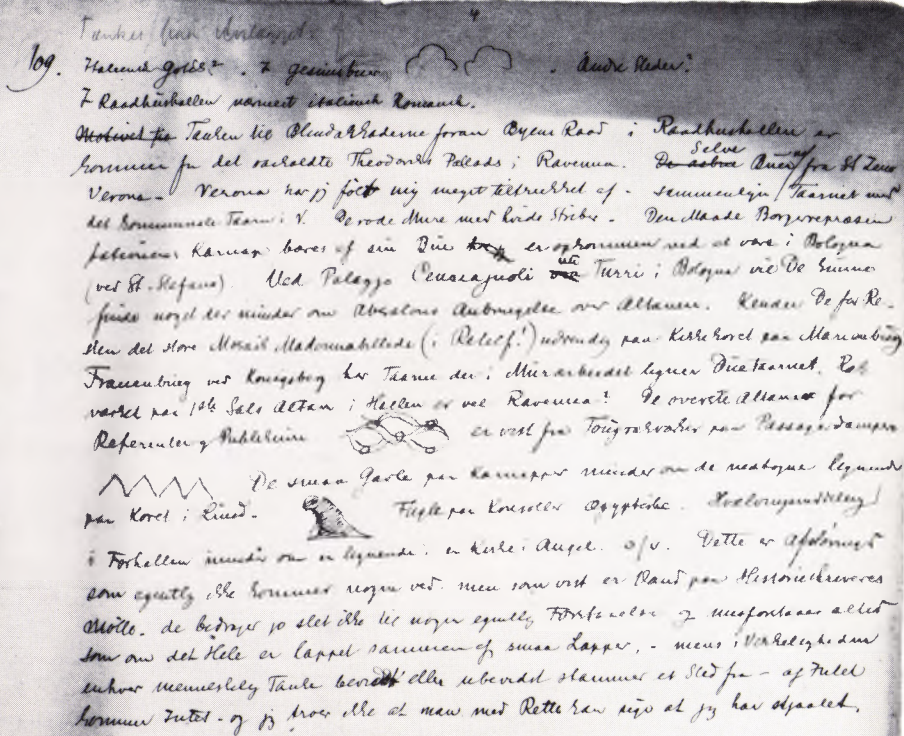 4
109. Italiensk Gotik? . I gesimsbuen . Andre Steder?
I Raadhushallen nærmest italiensk Romansk.
Motivet fra Tanken til Blindarkaderne foran Byens Raad i Raadhushallen er
kommen fra det saakaldte Theodoriks Pallads i Ravenna. De Selve Buen fra St Zeno
Verona - Verona har jeg følt mig meget tiltrukket af - sammenlign Taarnet med
det kommunale Taarn i V. De røde Mure med hvide Striber - Den Maade Borgerrepræsen
tationens Karnap bæres af sin Bue er opkommen ved at være i Bologna
(ved St. Stefano). Ved Palazzo Turri i Bologna vil De kunne
finde noget der minder om Absalons Anbringelse over Altanen. Kender De for Re-
sten det store Mosaik Madonnabillede (i Relief!) udvendig paa Kirkekoret paa Marienburg
Frauenburg ved Konigsberg har Taarne der i Murarbeidet ligner Duetaarnet. Ræk
værket paa 1ste Sals Altan i Hallen er vel Ravenna? De øverste Altaner for
Referenter og Publikum er vist fra Tougrækværker paa Passagerdampere
De smaa Gavle paa Karnapper minder om de nedbøjne lignende
paa Koret i Lund. - Fugle paa Konsoller Ægyptiske. Hvælvingsinddeling
i Forhallen minder om en lignende i en Kirke i Angel. o/s/v. Dette er Afsløringer
som egentlig ikke kommer nogen ved men som vist er Vand paa Historieskriveres
Mølle. de bidrager jo slet ikke til nogen egentlig Forstaaelse og misforstaas altid
som om det Hele er lappet sammen af smaa Lapper, - mens i Virkeligheden
enhver menneskelig Tanke bevidst eller ubevidst stammer et Sted fra - af Intet
kommer Intet - og jeg troer ikke at man med Rette kan sige at jeg har stjaalet.